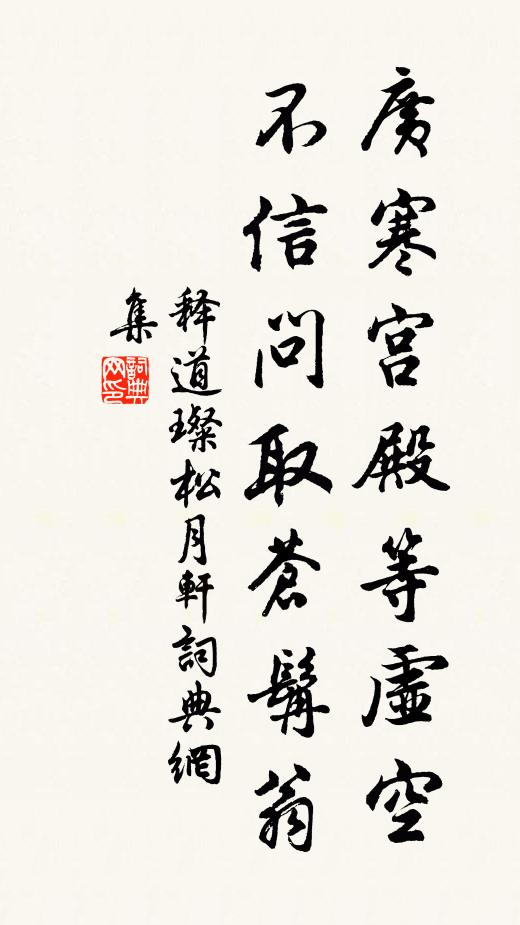 廣寒宮殿等虛空
不信問取蒼髯翁
释道璨松月軒詞典網
集
詞典
网印